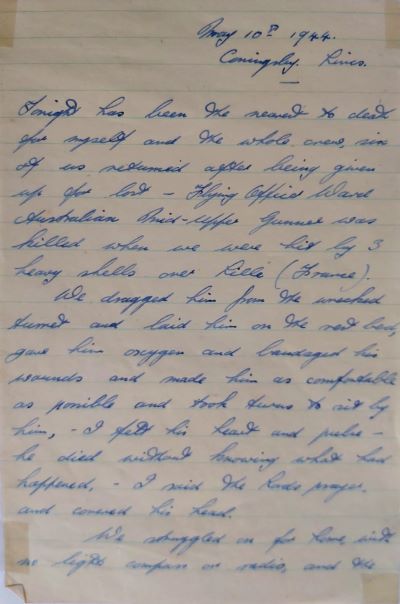 May 10th 1944.
Coningsby. Lincs.
Tonight has been the nearest to death
for myself and the whole crew, six
of us returned after being given
up for lost - Flying Officer Ward
Australian Mid-Upper Gunner was
killed when we were hit by 3
heavy shells over Lille (France).
We dragged him from the wrecked
turret and laid him on the rest bed,
gave him oxygen and bandaged his
wounds and made him as comfortable
as possible and took turns to sit by
him, - I felt his heart and pulse -
he died without knowing what had
happened, - I said the Lords prayer.
and covered his head.
We struggled on for home, with
no light compass or radio, and the